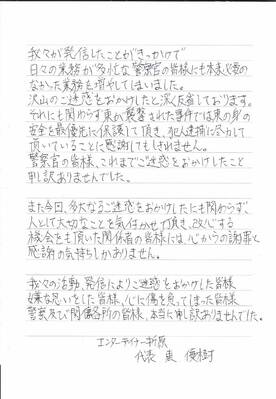 我々が発信したことがきっかけで
日々の業務が多忙な警察官の皆様にも本来必要の
なかった業務を増やしてしまいました。
沢山のご迷惑をおかけしたと深く反省しております。
それにも関わらず東が襲撃された事件では東の身の
安全を最優先に保護して頂き、犯人逮捕に尽力して
頂いていることに感謝してもしきれません。
警察官の皆様、これまでご迷惑をおかけしたこと
申し訳ありませんでした。
また今回、多大なるご迷惑をおかけしたにも関わらず、
人として大切なことを気付かせて頂き、改心する
機会をも頂いた関係者の皆様には、心からの謝罪と
感謝の気持ちしかありません。
我々の活動、発信によりご迷惑をおかけした皆様
嫌な思いをした皆様、心に傷を負ってしまった皆様
警察及び関係各所の皆様、本当に申し訳ありませんでした。
エンターテイナー折原
代表 東 優樹